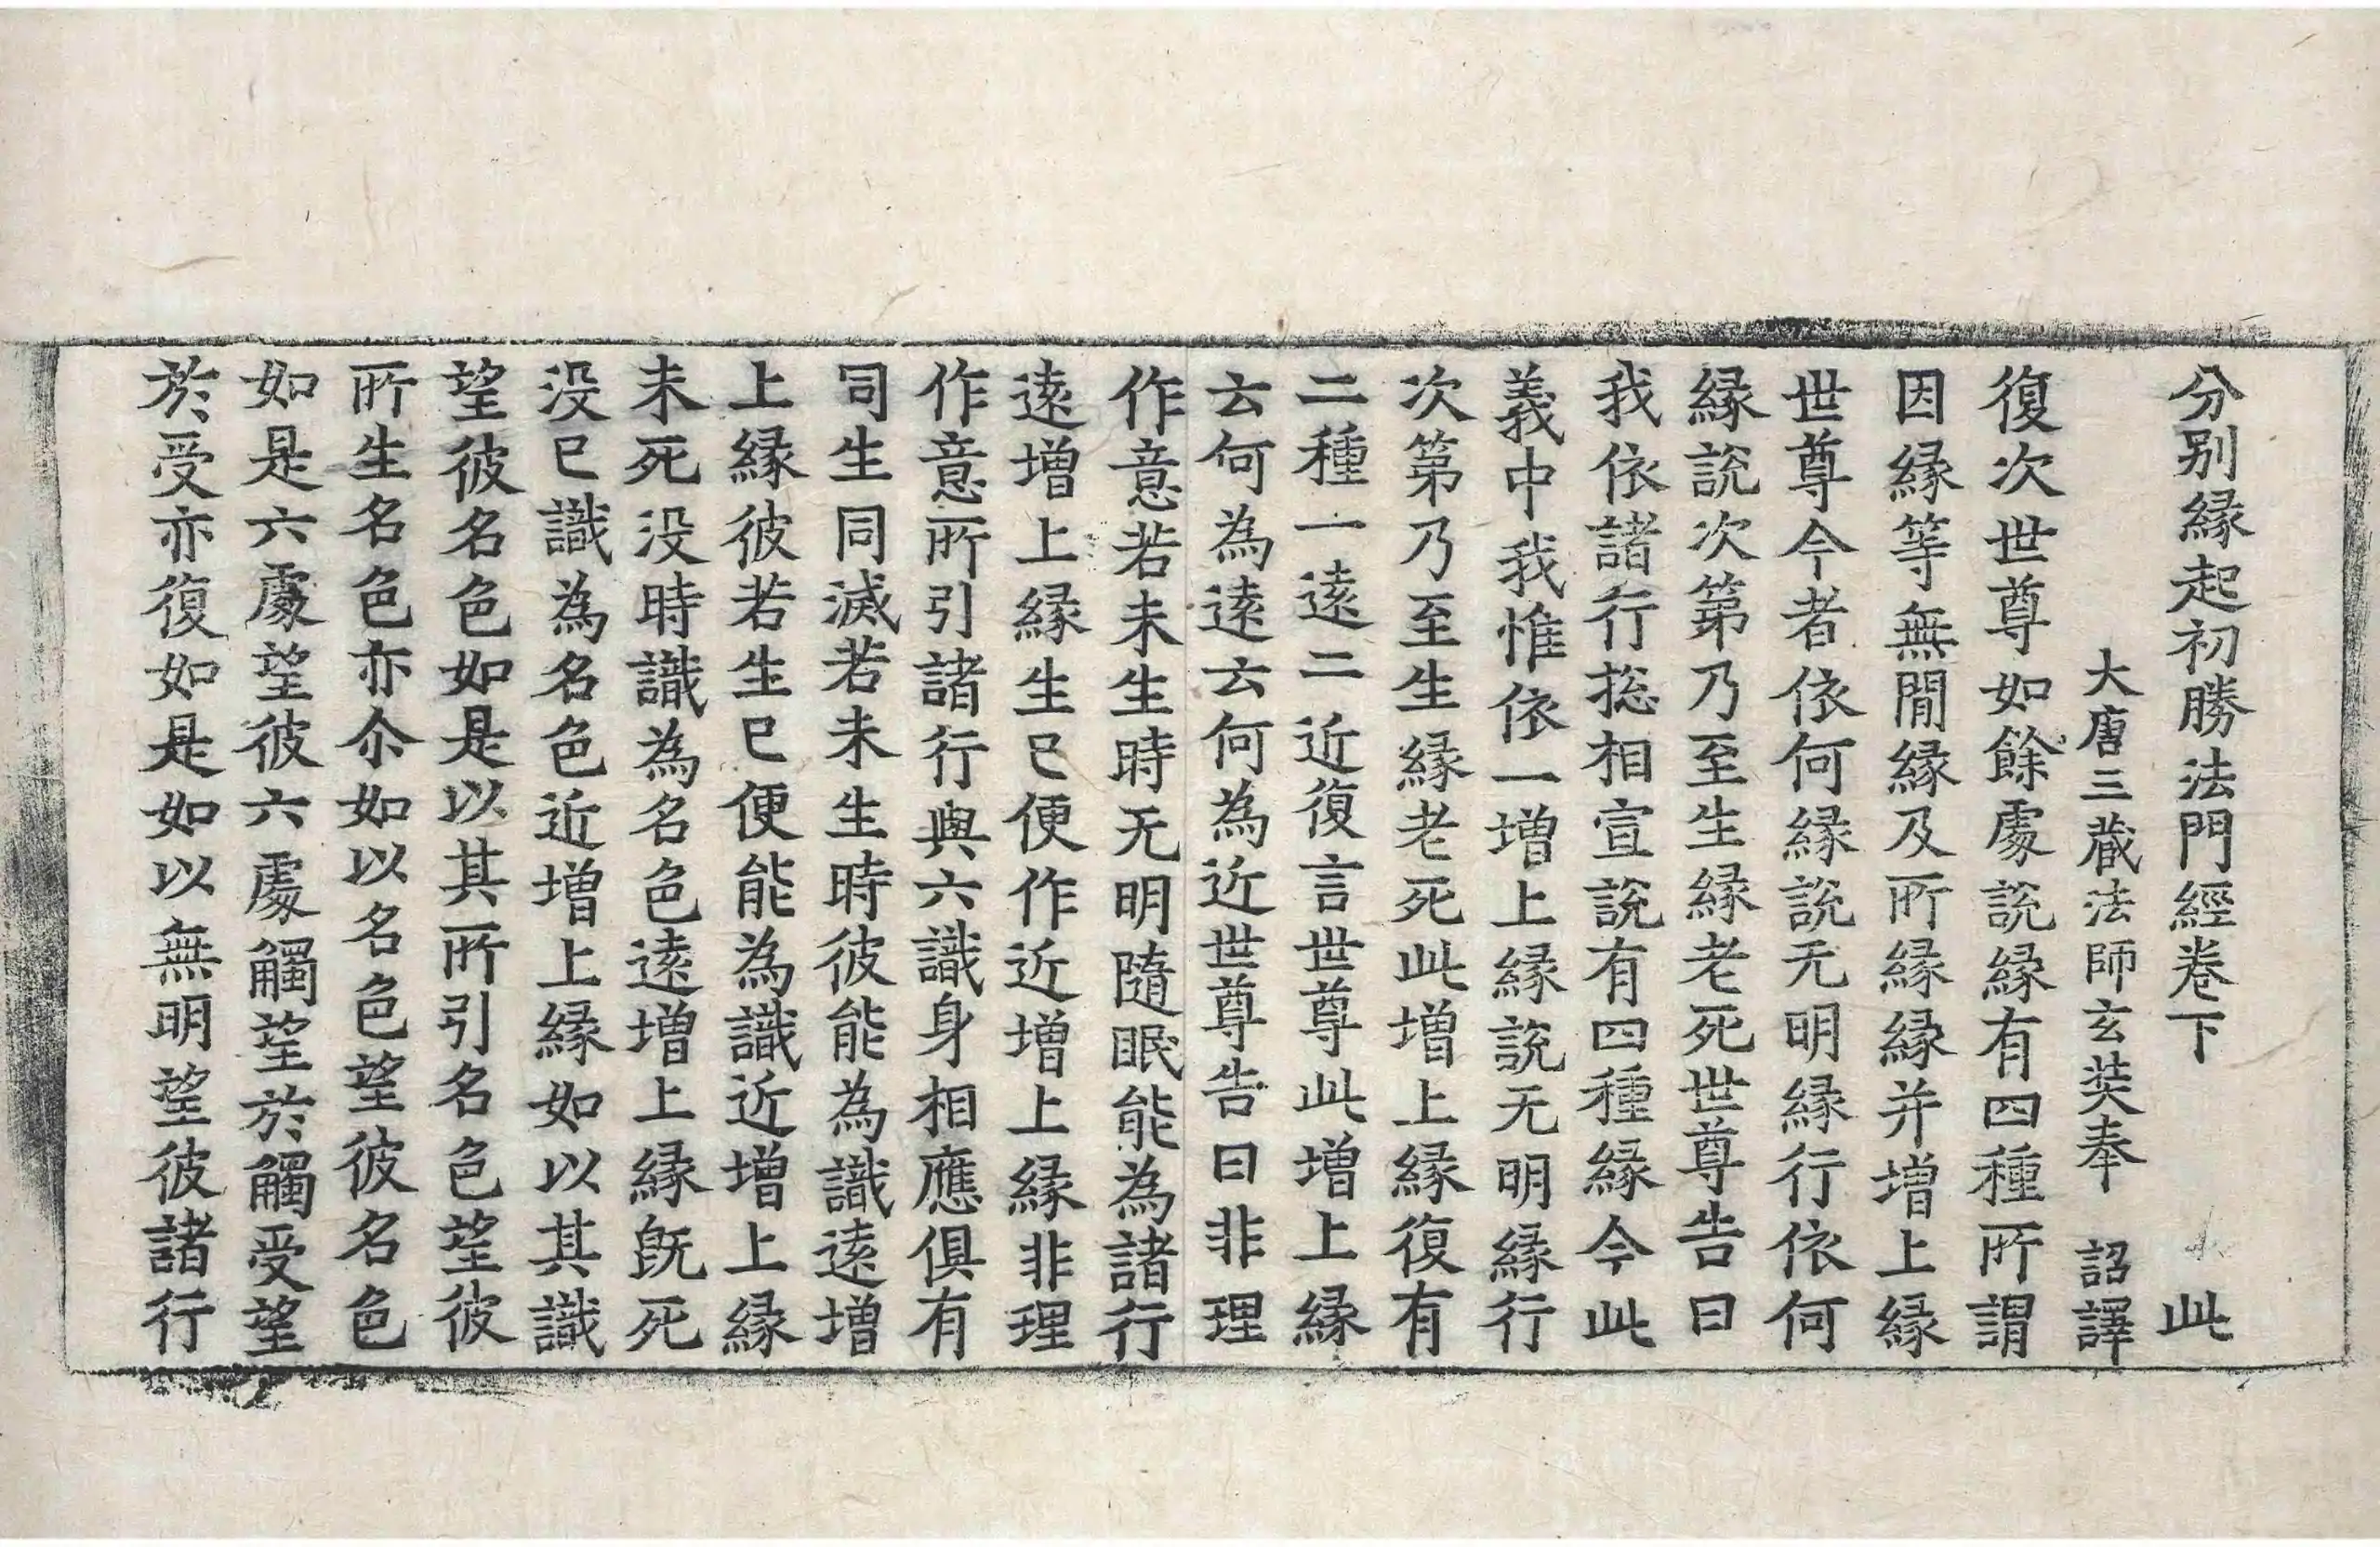 分别縁起初勝法門經卷下 此
大唐三藏法師玄奘奉 詔譯
復次世尊如餘處說縁有四種所謂
因縁等無閒縁及所縁縁并增上縁
世尊今者依何縁說无明縁行依何
縁說次第乃至生縁老死世尊告曰
我依諸行捴相宣說有四種縁今此
義中我惟依一增上縁說无明縁行
次第乃至生縁老死此增上縁復有
二種一遠二近復言世尊此增上縁
云何為遠云何為近世尊告曰非理
作意若未生時无明隨眠能為諸行
遠增上縁生已便作近增上縁非理
作意所引諸行與六識身相應俱有
司生同滅若未生時彼能為識遠增
上縁彼若生已便能為識近增上縁
未死没時識為名色遠增上縁旣死
没已識為名色近增上縁如以其識
望彼名色如是以其所引名色望彼
所生名色亦尒如以名色望彼名色
如是六處望彼六處觸望於觸受望
於受亦復如是如以無明望彼諸行